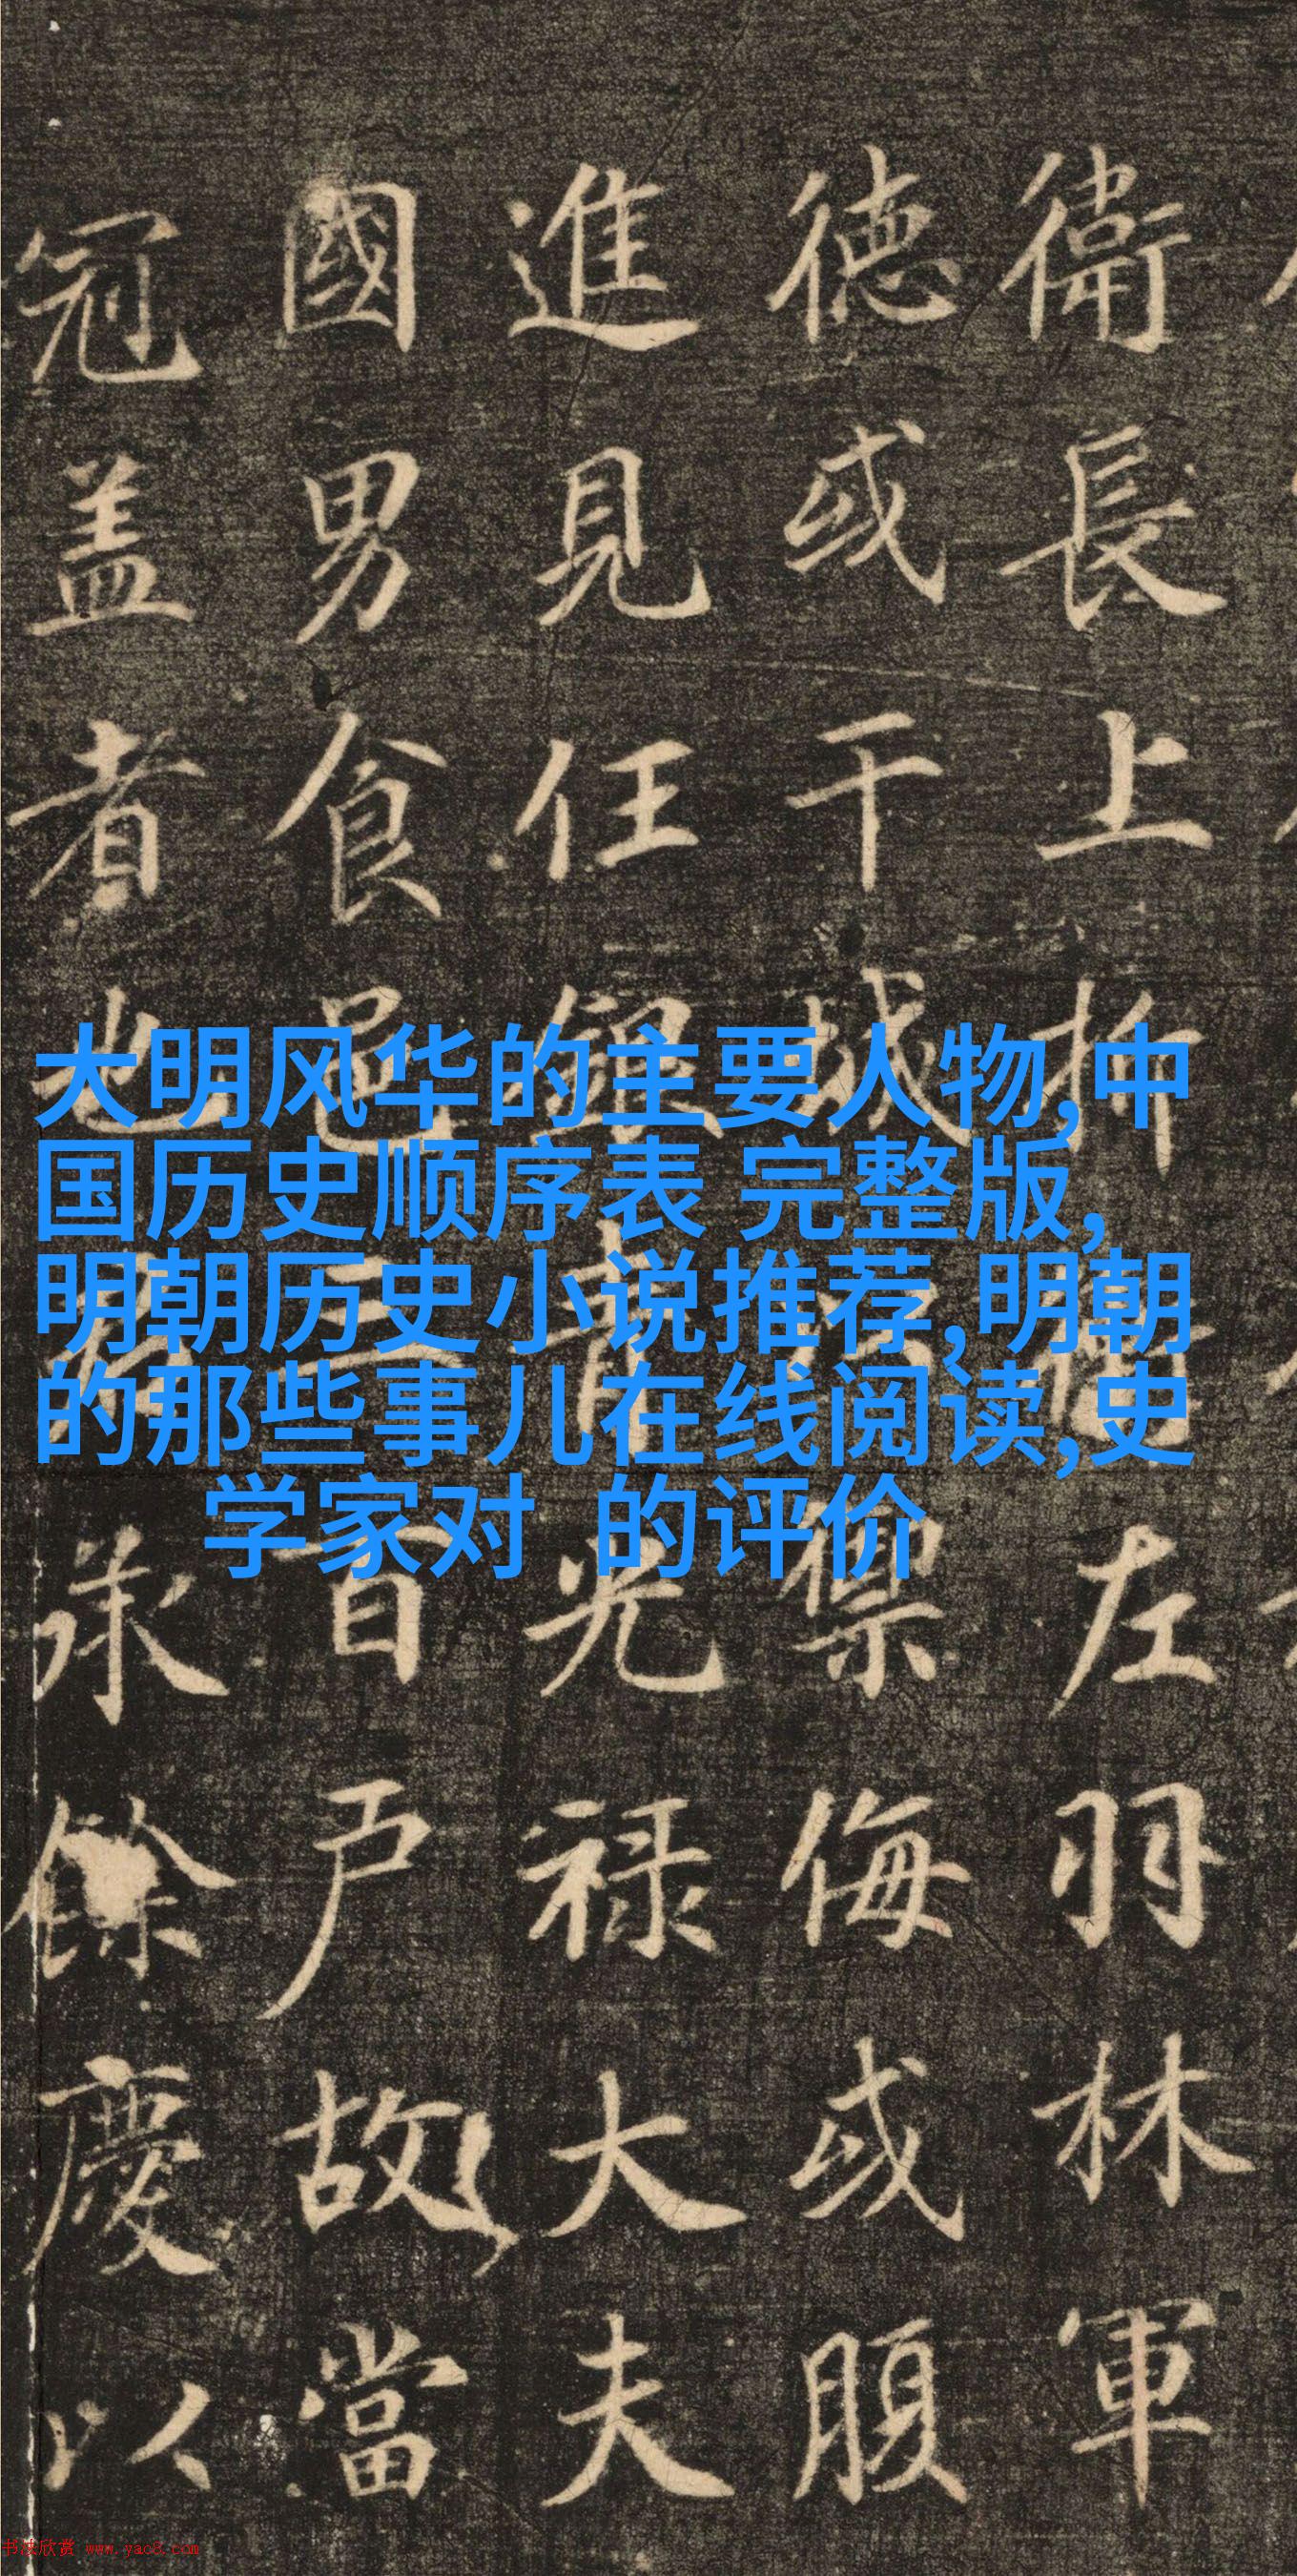 衛長上折
左羽林軍
德或干城
禦侮或腹
進見任
光禄大夫
國男食邑三百戶故
當
冠盖者也
承餘慶以
大明风华的主要人物,中
国历史顺序表 完整版,
明朝历史小说推荐,明朝
的那些事儿在线阅读,史
学家对 的评价
书法欣赏 www.yac8.com